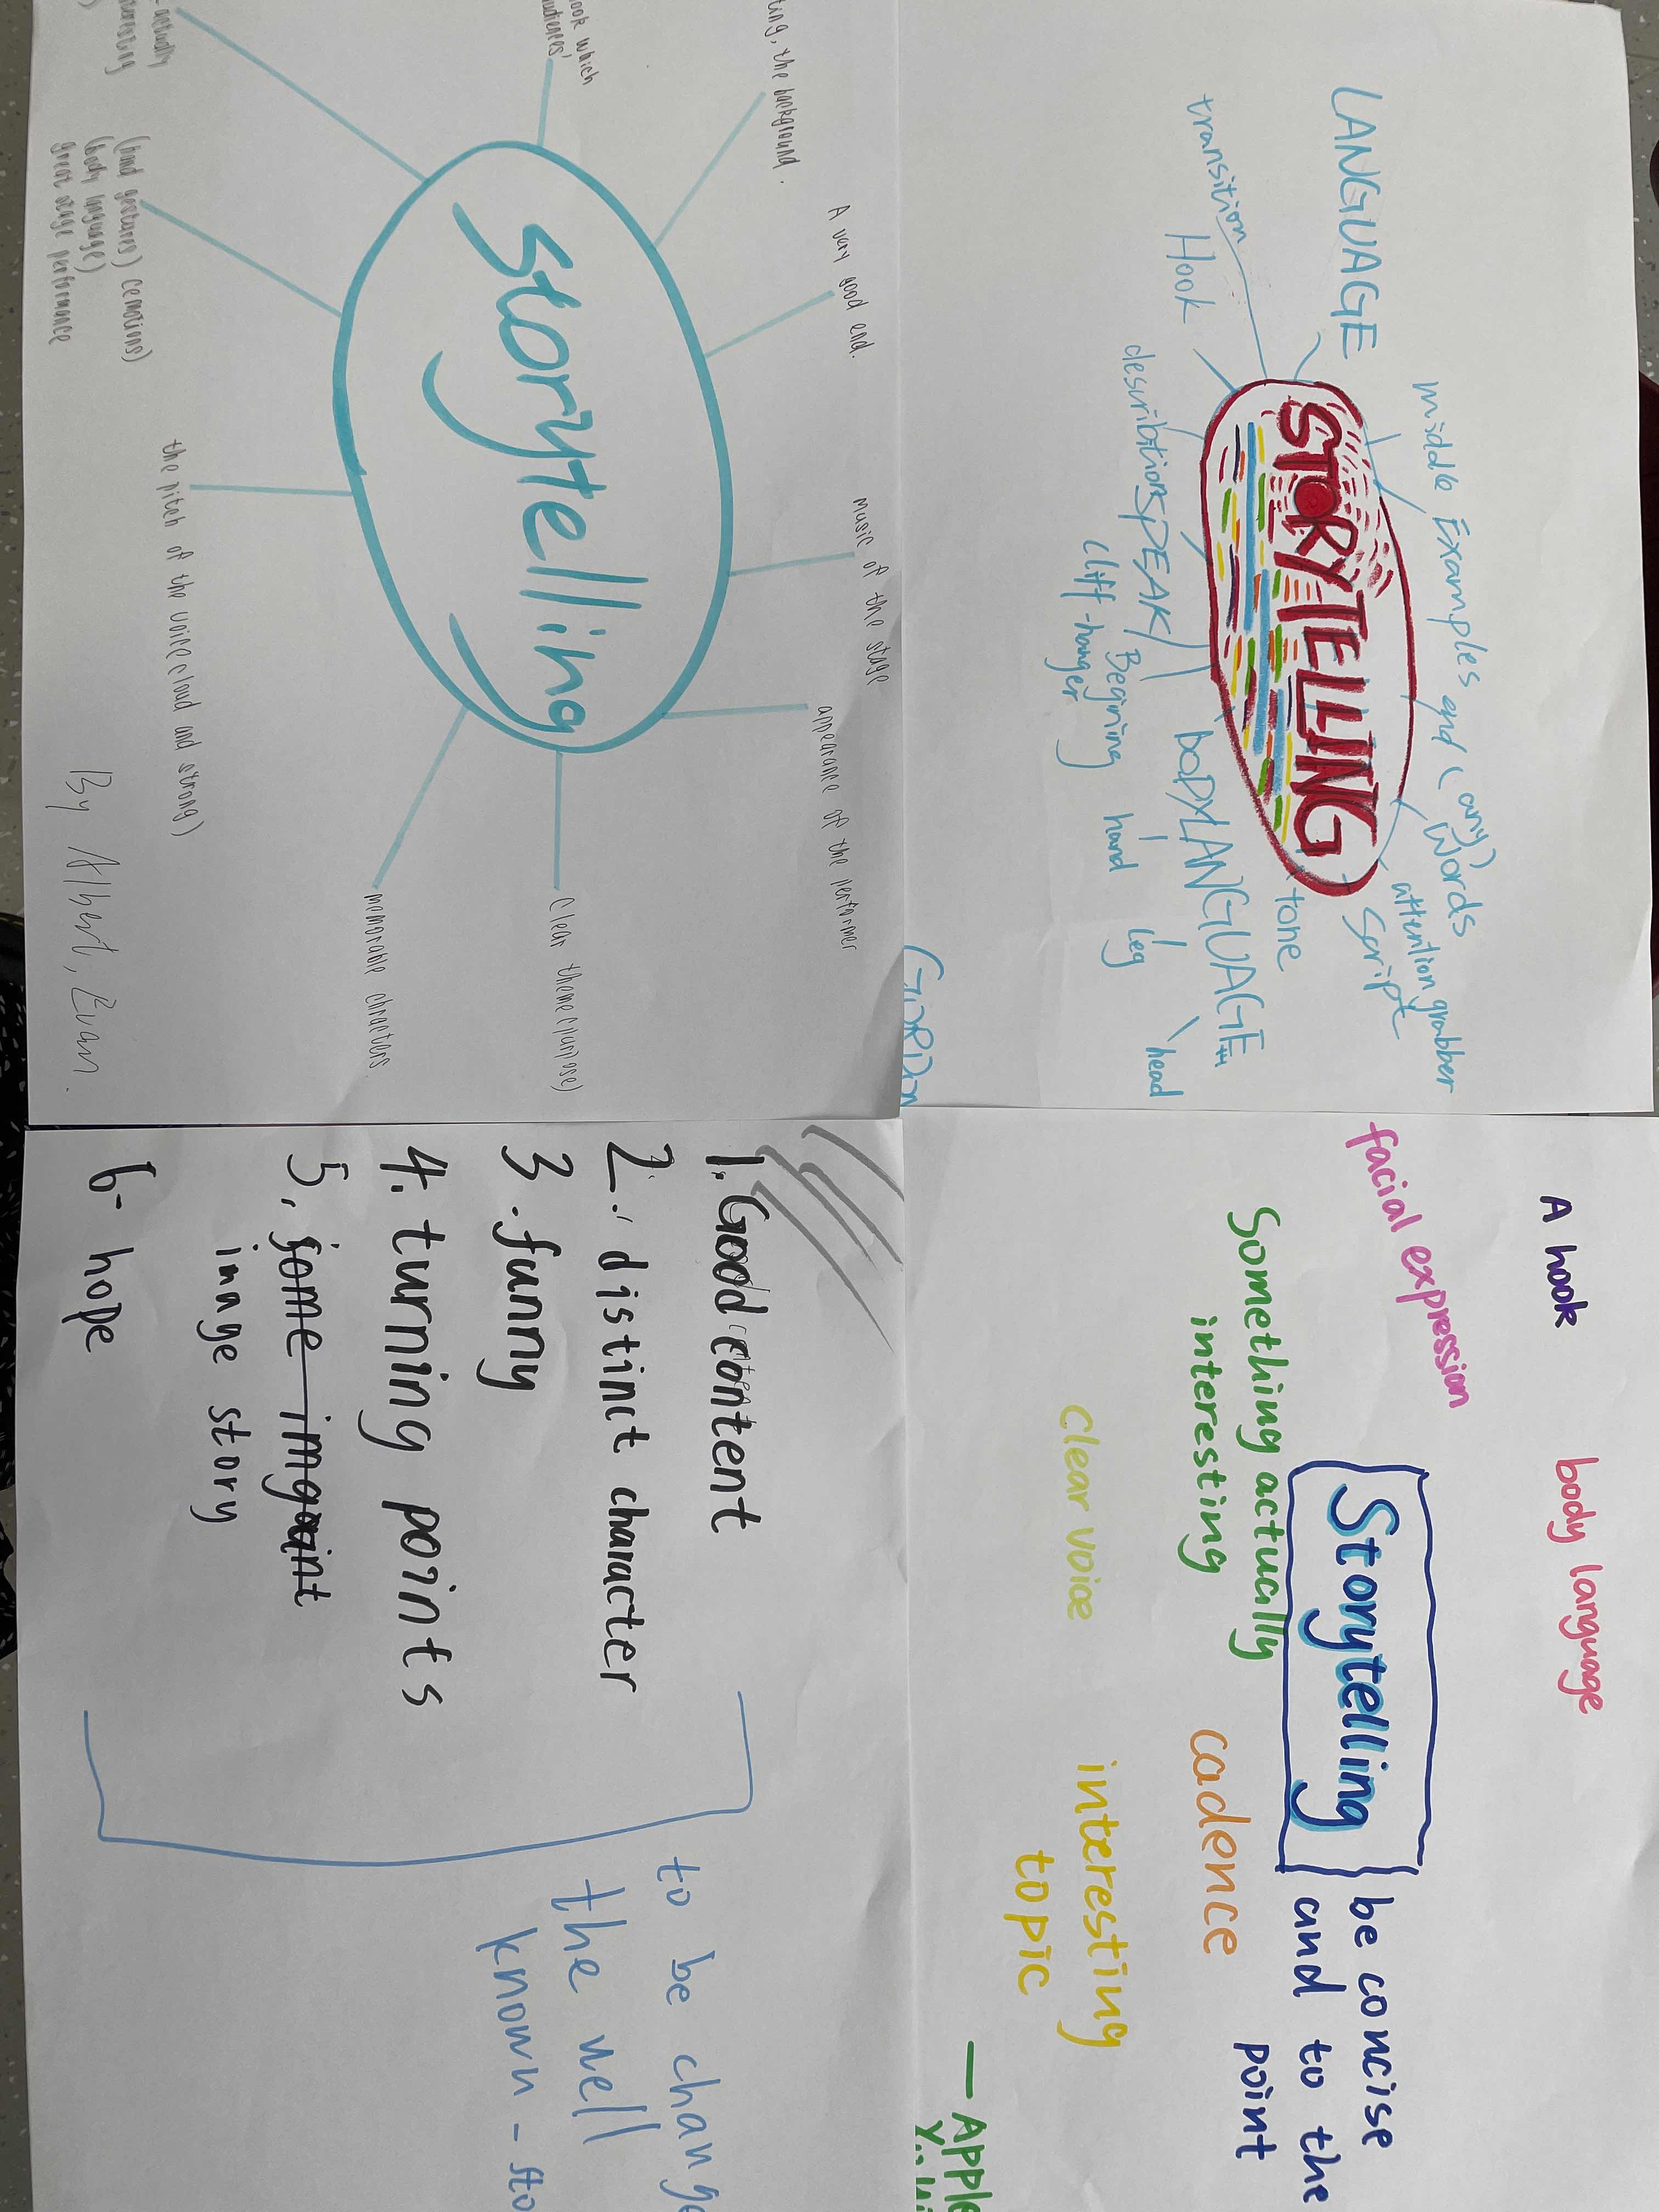 LANGUAGE
transition
Hook
middle
Examples and (any)
Words
attention grabber
Script
STORYTELLING
tone
describtion
SPEAK
Begining
cliff-hanger
BODY LANGUAGE
hand
leg
head
GORDON
A hook
body language
facial expression
Storytelling
be concise
and to the
point
Something actually
interesting
cadence
clear voice
interesting
topic
— APPLE
ting, the background.
A very good end.
music of the stage
appearance of the performer
ook which
audiences'
Storytelling
Clear theme(purpose)
memorable chracters
-actually
(hand gestures) (emotions)
(body language)
great stage performance
the pitch of the voice(loud and strong)
By Albert, Evan.
1. Good content
2. distinct character
3. funny
4. turning points
5. some
image story
6- hope
to be change
the well
known - sto